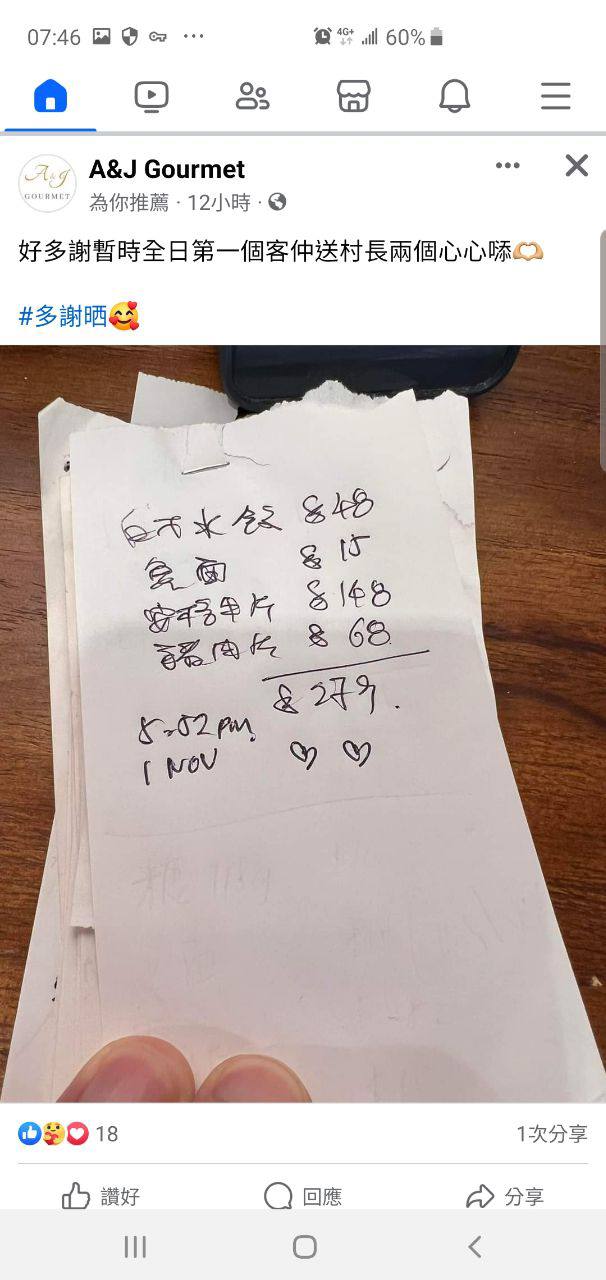 07:46
4G+
60%
A&J Gourmet
A&J
GOURMET
為你推薦 · 12小時 ·
好多謝暫時全日第一個客仲送村長兩個心心㗎🫶🏼
#多謝晒🥰
水餃 $48
魚面 $15
安格牛片 $148
豬肉片 $68
$279.
5:52 pm
1 NOV
♡ ♡
18
1次分享
讚好
回應
分享